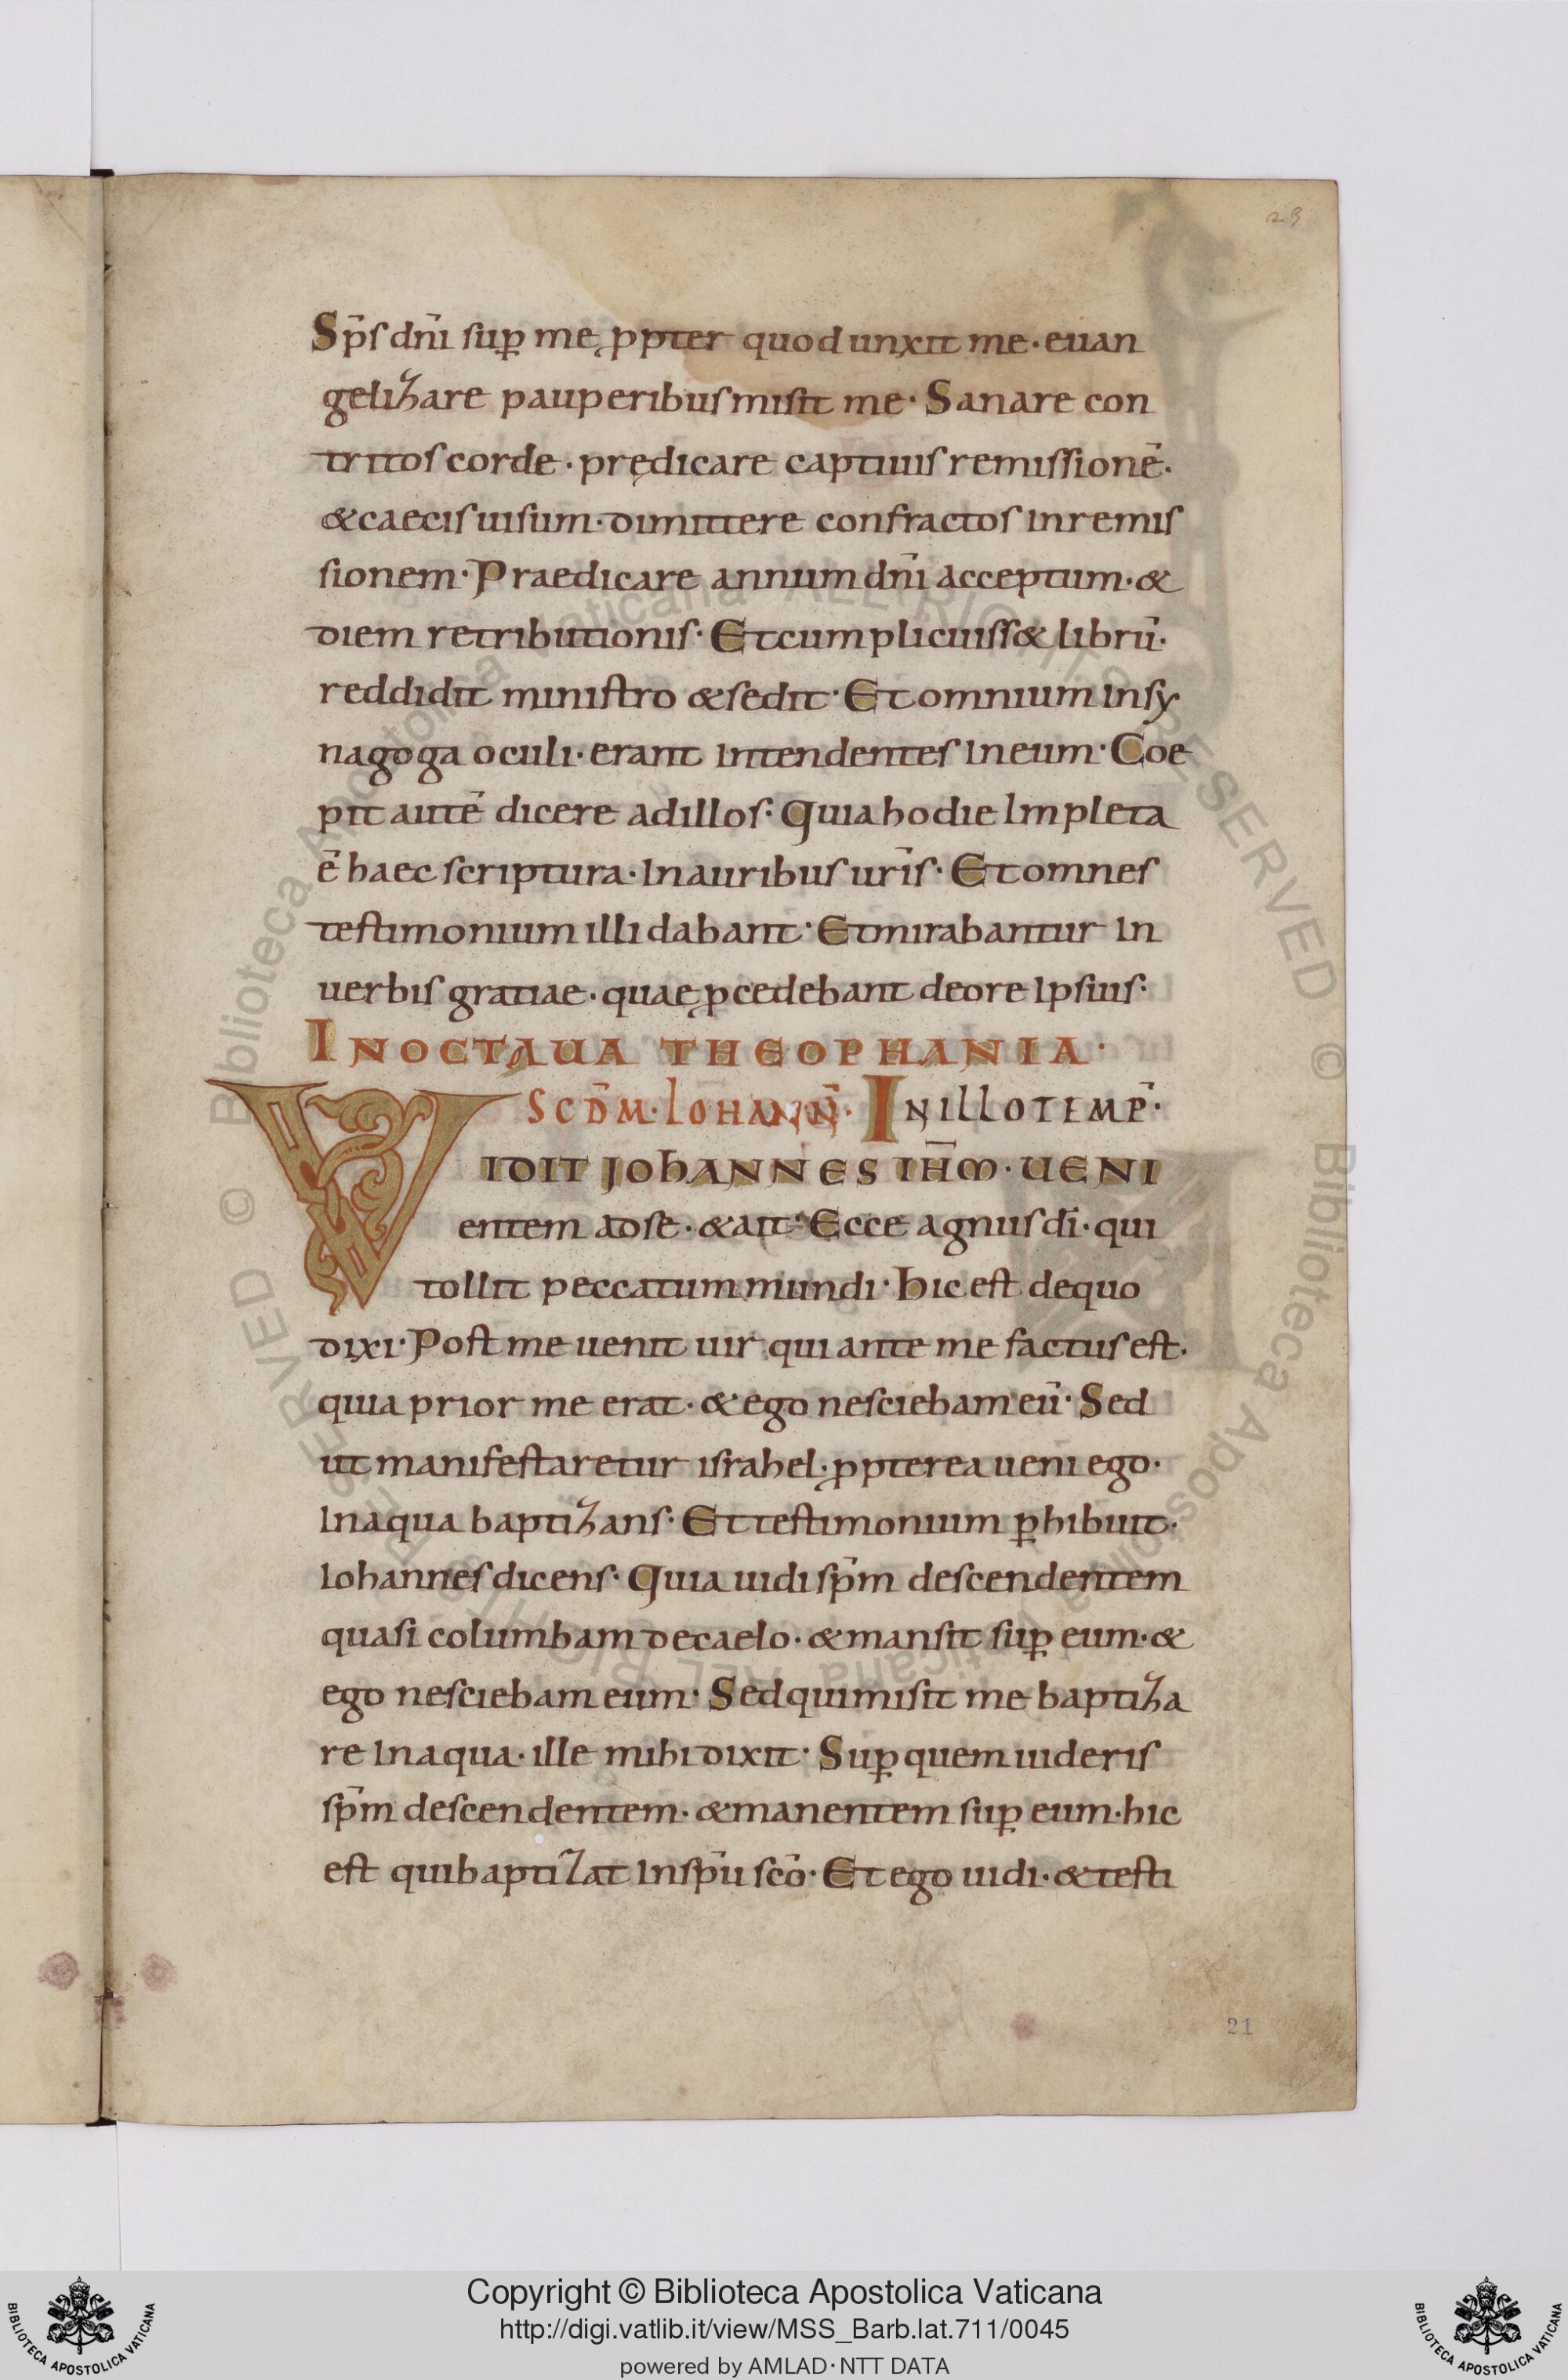 23
Sp̄s dn̄i sup̱ me, p̱pter quod unxit me · euan
gelizare pauperibus misit me · Sanare con
tritos corde · prędicare captiuis remissionē ·
& caecis uisum · dimittere confractos in remis
sionem · Praedicare annum dn̄i acceptum · &
diem retributionis · Et cum plicuiss& librū ·
reddidit ministro & sedit · Et omnium in sy
nagoga oculi · erant intendentes in eum · Coe
pit autē dicere ad illos · Quia hodie impleta
ē haec scriptura · In auribus ur̄is · Et omnes
testimonium illi dabant · Et mirabantur in
uerbis gratiae · quae p̱cedebant de ore ipsius ·
IN OCTAUA THEOPHANIA ·
SCD̄M · IOHANN̄ · IN ILLO TEMP̄ ·
VIDIT IOHANNES IH̄M · UENI
entem ad se · & ait · Ecce agnus dī · qui
tollit peccatum mundi · Hic est de quo
dixi · Post me uenit uir qui ante me factus est ·
quia prior me erat · & ego nesciebam eū · Sed
ut manifestaretur israhel · p̱pterea ueni ego ·
In aqua baptizans · Et testimonium p̱hibuit ·
Iohannes dicens · Quia uidi sp̄m descendentem
quasi columbam de caelo · & mansit sup̱ eum · &
ego nesciebam eum · Sed qui misit me baptiza
re in aqua · ille mihi dixit · Sup̱ quem uideris
sp̄m descendentem · & manentem sup̱ eum · hic
est qui baptizat in sp̄u scō · Et ego uidi · & testi
21
© Biblioteca Apostolica Vaticana ALL RIGHTS RESERVED
© Biblioteca Apostolica Vaticana ALL RIGHTS RESERVED
Copyright © Biblioteca Apostolica Vaticana
http://digi.vatlib.it/view/MSS_Barb.lat.711/0045
powered by AMLAD·NTT DATA
BIBLIOTECA APOSTOLICA VATICANA
BIBLIOTECA APOSTOLICA VATICANA